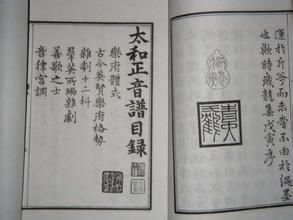 運於斤斧而未嘗不由於繩墨
也歟時歲龍集戊寅序
太和正音譜目録
樂府體式
古今英賢樂府格勢
雜劇十二科
羣英所編雜劇
善歌之士
音律宮調